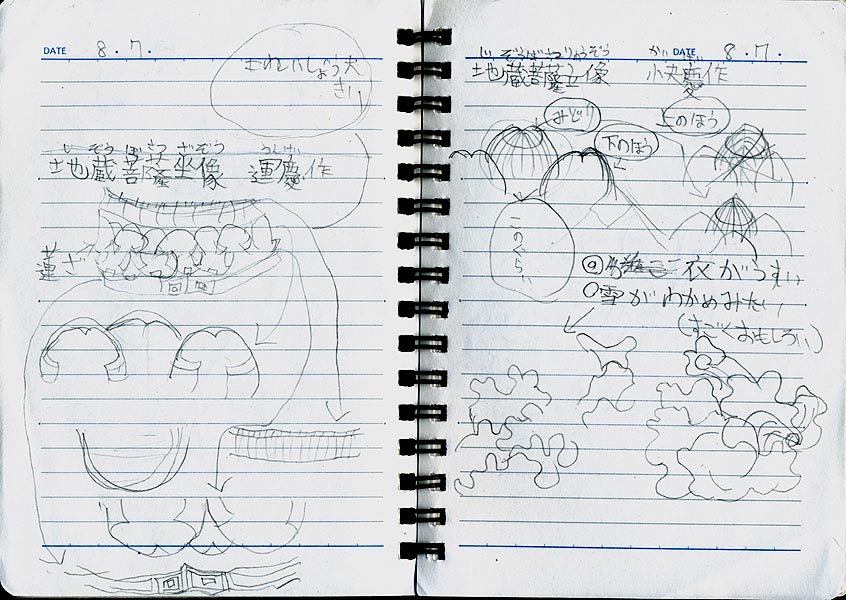 DATE 8.7.
きれいしょう大
きい
じ ぞう ぼ さつ ざ ぞう うんけい
地蔵菩薩坐像 運慶作
蓮ざ
DATE 8.7.
じ ぞうぼさつりゅうぞう
地蔵菩薩立像 作
みどり
上のほう
下のほう
衣がうすい
雲がわかめみたい
(すごくおもしろい)